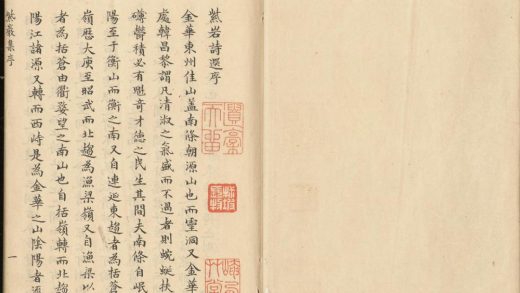 紫岩詩選序
金華東州佳山盖南條朝源山也而靈洞又金華
處韓昌黎謂凡清淑之氣盛而不過者則蜿蜒扶
礴鬱積必有魁奇才德之民生其間夫南條自岷
陽至于衡山而衡之南又自連延東趨者為括蒼
嶺歷大庾至昭武而北趨為漁梁嶺又自漁梁以
者為括蒼由衢婺望之南山也自括嶺轉而北趨
陽江諸源又轉而西峙是為金華之山陰陽者
紫巖集序
一